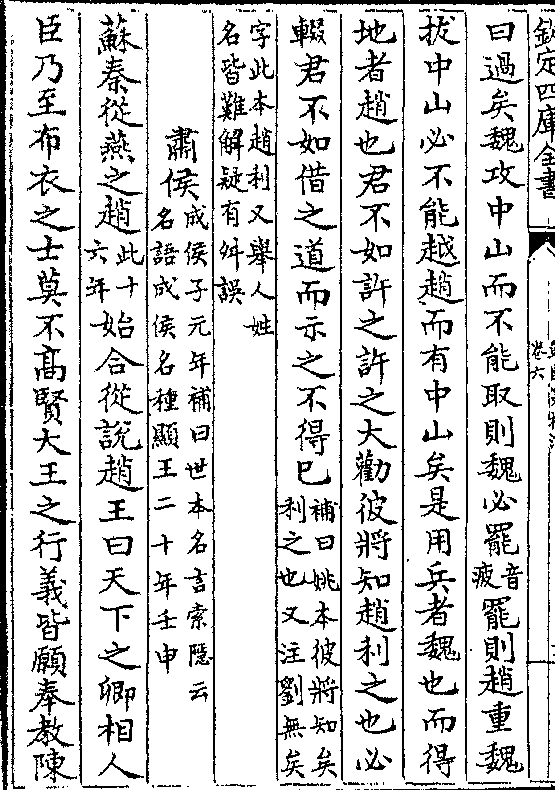 欽定四庫全書
卷六
曰過矣魏攻中山而不能取則魏必罷音疲罷則趙重魏
拔中山必不能越趙而有中山矣是用兵者魏也而得
地者趙也君不如許之許之大勸彼將知趙利之也必
輟君不如借之道而示之不得已補曰姚本彼將知矣利之也又注劉無矣
字此本趙利又舉人姓名皆難解疑有舛誤
肅侯成侯子元年補曰世本名言索隱云名語成侯名種顯王二十年壬申
蘇秦從燕之趙此十六年始合從說趙王曰天下之卿相人
臣乃至布衣之士莫不高賢大王之行義皆願奉教陳